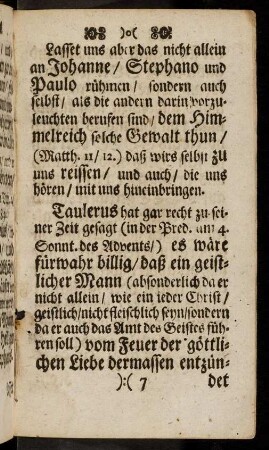 ):o(
Lasset uns aber das nicht allein
an Johanne/ Stephano und
Paulo rühmen/ sondern auch
selbst/ als die andern darin vorzu-
leuchten berufen sind/ dem Him-
melreich solche Gewalt thun/
(Matth. 11/ 12.) daß wirs selbst zu
uns reissen/ und auch/ die uns
hören/ mit uns hineinbringen.
Taulerus hat gar recht zu sei-
ner Zeit gesagt (in der Pred. am 4.
Sonnt. des Advents/) es wäre
fürwahr billig/ daß ein geist-
licher Mann (absonderlich da er
nicht allein/ wie ein ieder Christ/
geistlich/ nicht fleischlich seyn/ sondern
da er auch das Amt des Geistes füh-
ren soll) vom Feuer der göttli-
chen Liebe dermassen entzün-
):( 7 det